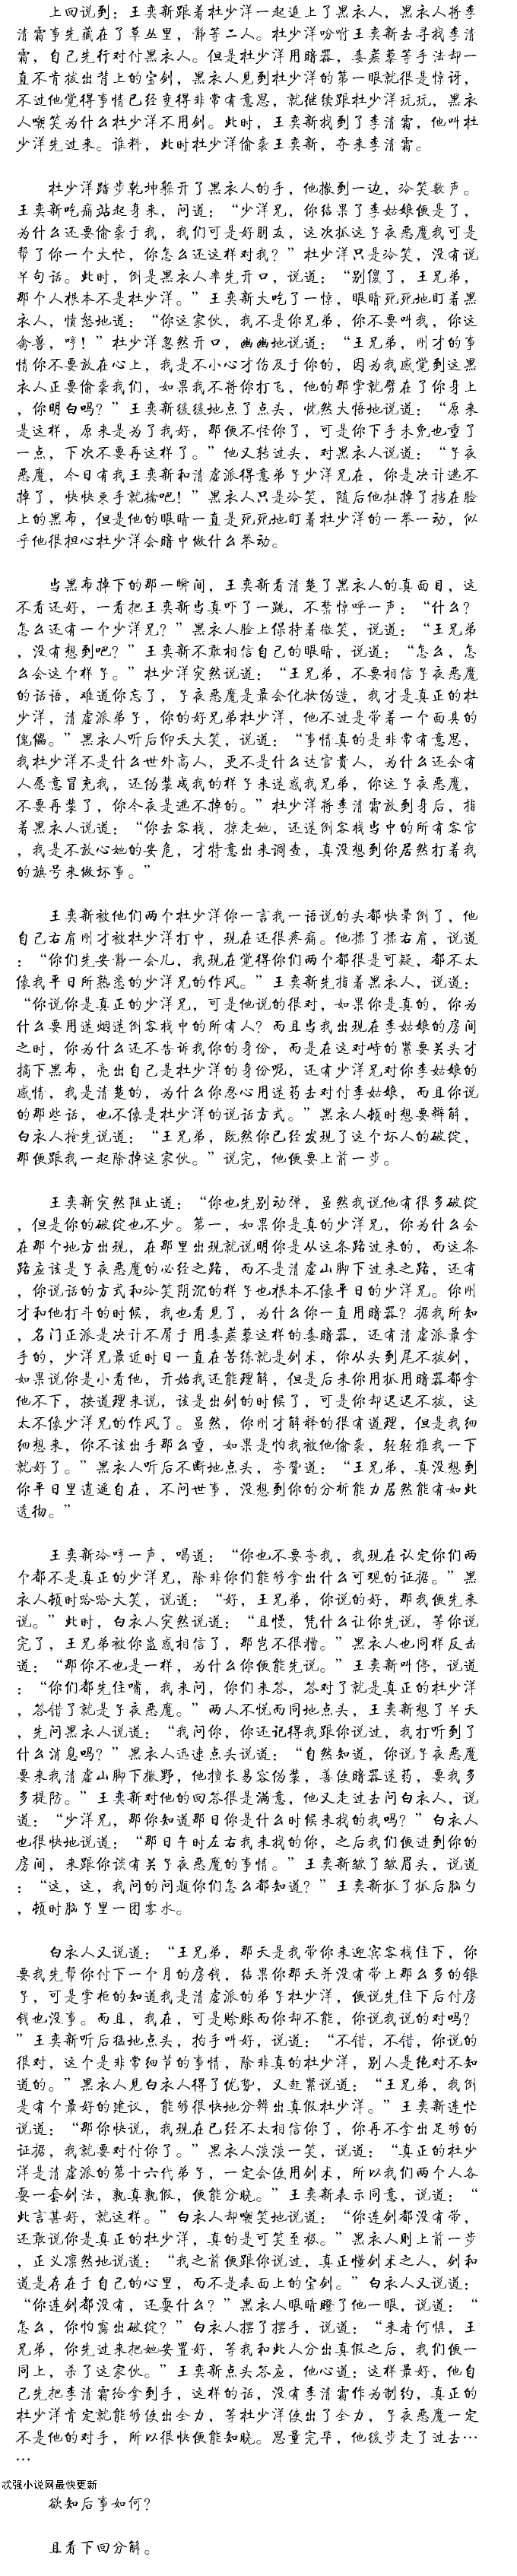 上回说到：王奕新跟着杜少洋一起追上了黑衣人，黑衣人将李
清霜事先藏在了草丛里，静等二人。杜少洋吩咐王奕新去寻找李清
霜，自己先行对付黑衣人。但是杜少洋用暗器，毒蒺藜等手法却一
直不肯拔出背上的宝剑，黑衣人见到杜少洋的第一眼就很是惊讶，
不过他觉得事情已经变得非常有意思，就继续跟杜少洋玩玩，黑衣
人嘲笑为什么杜少洋不用剑。此时，王奕新找到了李清霜，他叫杜
少洋先过来。谁料，此时杜少洋偷袭王奕新，夺来李清霜。
杜少洋踏步乾坤躲开了黑衣人的手，他撤到一边，冷笑数声。
王奕新吃痛站起身来，问道：“少洋兄，你结果了李姑娘便是了，
为什么还要偷袭于我，我们可是好朋友，这次抓这子夜恶魔我可是
帮了你一个大忙，你怎么还这样对我？”杜少洋只是冷笑，没有说
半句话。此时，倒是黑衣人率先开口，说道：“别傻了，王兄弟，
那个人根本不是杜少洋。”王奕新大吃了一惊，眼睛死死地盯着黑
衣人，愤怒地道：“你这家伙，我不是你兄弟，你不要叫我，你这
禽兽，哼！”杜少洋忽然开口，幽幽地说道：“王兄弟，刚才的事
情你不要放在心上，我是不小心才伤及于你的，因为我感觉到这黑
衣人正要偷袭我们，如果我不将你打飞，他的那掌就劈在了你身上
，你明白吗？”王奕新缓缓地点了点头，恍然大悟地说道：“原来
是这样，原来是为了我好，那便不怪你了，可是你下手未免也重了
一点，下次不要再这样了。”他又转过头，对黑衣人说道：“子夜
恶魔，今日有我王奕新和清虚派得意弟子少洋兄在，你是决计逃不
掉了，快快束手就擒吧！”黑衣人只是冷笑，随后他扯掉了挡在脸
上的黑布，但是他的眼睛一直是死死地盯着杜少洋的一举一动，似
乎他很担心杜少洋会暗中做什么举动。
当黑布掉下的那一瞬间，王奕新看清楚了黑衣人的真面目，这
不看还好，一看把王奕新当真吓了一跳，不禁惊呼一声：“什么？
怎么还有一个少洋兄？”黑衣人脸上保持着微笑，说道：“王兄弟
，没有想到吧？”王奕新不敢相信自己的眼睛，说道：“怎么，怎
么会这个样子。”杜少洋突然说道：“王兄弟，不要相信子夜恶魔
的话语，难道你忘了，子夜恶魔是最会化妆伪造，我才是真正的杜
少洋，清虚派弟子，你的好兄弟杜少洋，他不过是带着一个面具的
傀儡。”黑衣人听后仰天大笑，说道：“事情真的是非常有意思，
我杜少洋不是什么世外高人，更不是什么达官贵人，为什么还会有
人愿意冒充我，还伪装成我的样子来迷惑我兄弟，你这子夜恶魔，
不要再装了，你今夜是逃不掉的。”杜少洋将李清霜放到身后，指
着黑衣人说道：“你去客栈，掠走她，还迷倒客栈当中的所有客官
，我是不放心她的安危，才特意出来调查，真没想到你居然打着我
的旗号来做坏事。”
王奕新被他们两个杜少洋你一言我一语说的头都快晕倒了，他
自己右肩刚才被杜少洋打中，现在还很疼痛。他揉了揉右肩，说道
：“你们先安静一会儿，我现在觉得你们两个都很是可疑，都不太
像我平日所熟悉的少洋兄的作风。”王奕新先指着黑衣人，说道：
“你说你是真正的少洋兄，可是他说的很对，如果你是真的，你为
什么要用迷烟迷倒客栈中的所有人？而且当我出现在李姑娘的房间
之时，你为什么还不告诉我你的身份，而是在这对峙的紧要关头才
摘下黑布，亮出自己是杜少洋的身份呢，还有少洋兄对你李姑娘的
感情，我是清楚的，为什么你忍心用迷药去对付李姑娘，而且你说
的那些话，也不像是杜少洋的说话方式。”黑衣人顿时想要辩解，
白衣人抢先说道：“王兄弟，既然你已经发现了这个坏人的破绽，
那便跟我一起除掉这家伙。”说完，他便要上前一步。
王奕新突然阻止道：“你也先别动弹，虽然我说他有很多破绽
，但是你的破绽也不少。第一，如果你是真的少洋兄，你为什么会
在那个地方出现，在那里出现就说明你是从这条路过来的，而这条
路应该是子夜恶魔的必经之路，而不是清虚山脚下过来之路，还有
，你说话的方式和冷笑阴沉的样子也根本不像平日的少洋兄。你刚
才和他打斗的时候，我也看见了，为什么你一直用暗器？据我所知
，名门正派是决计不屑于用毒蒺藜这样的毒暗器，还有清虚派最拿
手的，少洋兄最近时日一直在苦练就是剑术，你从头到尾不拔剑，
如果说你是小看他，开始我还能理解，但是后来你用抓用暗器都拿
他不下，按道理来说，该是出剑的时候了，可是你却迟迟不拔，这
太不像少洋兄的作风了。虽然，你刚才解释的很有道理，但是我细
细想来，你不该出手那么重，如果是怕我被他偷袭，轻轻推我一下
就好了。”黑衣人听后不断地点头，夸赞道：“王兄弟，真没想到
你平日里逍遥自在，不问世事，没想到你的分析能力居然能有如此
透彻。”
王奕新冷哼一声，喝道：“你也不要夸我，我现在认定你们两
个都不是真正的少洋兄，除非你们能够拿出什么可观的证据。”黑
衣人顿时哈哈大笑，说道：“好，王兄弟，你说的好，那我便先来
说。”此时，白衣人突然说道：“且慢，凭什么让你先说，等你说
完了，王兄弟被你蛊惑相信了，那岂不很糟。”黑衣人也同样反击
道：“那你不也是一样，为什么你便能先说。”王奕新叫停，说道
：“你们都先住嘴，我来问，你们来答，答对了就是真正的杜少洋
，答错了就是子夜恶魔。”两人不约而同地点头，王奕新想了半天
，先问黑衣人说道：“我问你，你还记得我跟你说过，我打听到了
什么消息吗？”黑衣人迅速点头说道：“自然知道，你说子夜恶魔
要来我清虚山脚下撒野，他擅长易容伪装，善使暗器迷药，要我多
多提防。”王奕新对他的回答很是满意，他又走过去问白衣人，说
道：“少洋兄，那你知道那日你是什么时候来找的我吗？”白衣人
也很快地说道：“那日午时左右我来找的你，之后我们便进到你的
房间，来跟你谈有关子夜恶魔的事情。”王奕新皱了皱眉头，说道
：“这，这，我问的问题你们怎么都知道？”王奕新抓了抓后脑勺
，顿时脑子里一团雾水。
白衣人又说道：“王兄弟，那天是我带你来迎宾客栈住下，你
要我先帮你付下一个月的房钱，结果你那天并没有带上那么多的银
子，可是掌柜的知道我是清虚派的弟子杜少洋，便说先住下后付房
钱也没事。而且，我在，可是赊账而你却不能，你说我说的对吗？
”王奕新听后猛地点头，拍手叫好，说道：“不错，不错，你说的
很对，这个是非常细节的事情，除非真的杜少洋，别人是绝对不知
道的。”黑衣人见白衣人得了优势，又赶紧说道：“王兄弟，我倒
是有个最好的建议，能够很快地分辨出真假杜少洋。”王奕新连忙
说道：“那你快说，我现在已经不太相信你了，你再不拿出足够的
证据，我就要对付你了。”黑衣人淡淡一笑，说道：“真正的杜少
洋是清虚派的第十六代弟子，一定会使用剑术，所以我们两个人各
耍一套剑法，孰真孰假，便能分晓。”王奕新表示同意，说道：“
此言甚好，就这样。”白衣人却嘲笑地说道：“你连剑都没有带，
还敢说你是真正的杜少洋，真的是可笑至极。”黑衣人则上前一步
，正义凛然地说道：“我之前便跟你说过，真正懂剑术之人，剑和
道是存在于自己的心里，而不是表面上的宝剑。”白衣人又说道：
“你连剑都没有，还耍什么？”黑衣人眼睛瞪了他一眼，说道：“
怎么，你怕露出破绽？”白衣人摆了摆手，说道：“来者何惧，王
兄弟，你先过来把她安置好，等我和此人分出真假之后，我们便一
同上，杀了这家伙。”王奕新点头答应，他心道：这样最好，他自
己先把李清霜给拿到手，这样的话，没有李清霜作为制约，真正的
杜少洋肯定就能够使出全力，等杜少洋使出了全力，子夜恶魔一定
不是他的对手，所以很快便能知晓。思量完毕，他缓步走了过去…
…
欢强小说网最快更新
欲知后事如何？
且看下回分解。